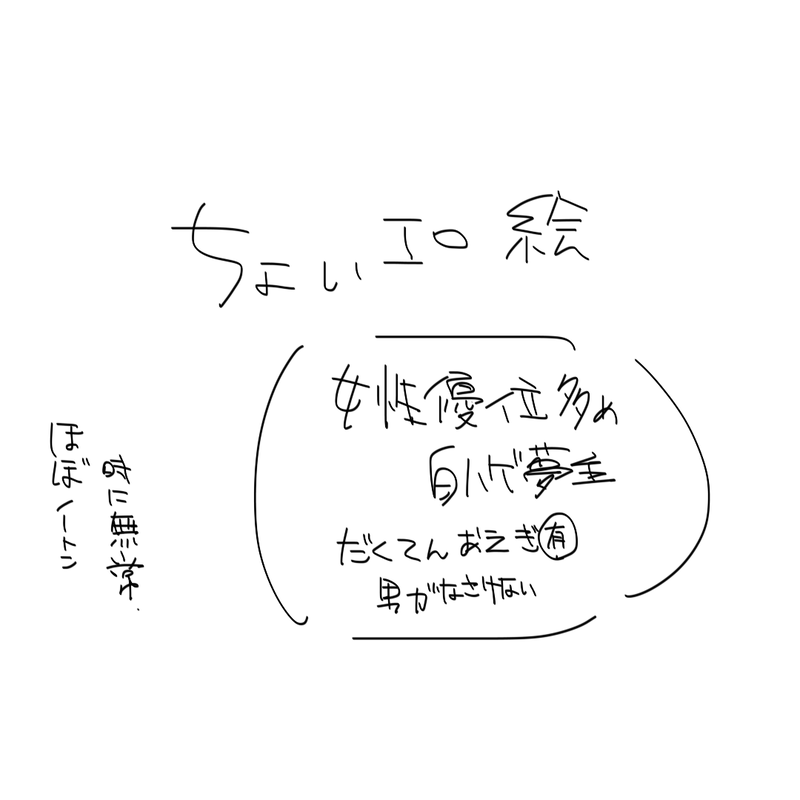 ちょいエロ絵
女性優位多め
白ハゲ夢主
だくてんおえぎ有
男がなさけない
時に無常
ほぼノートン